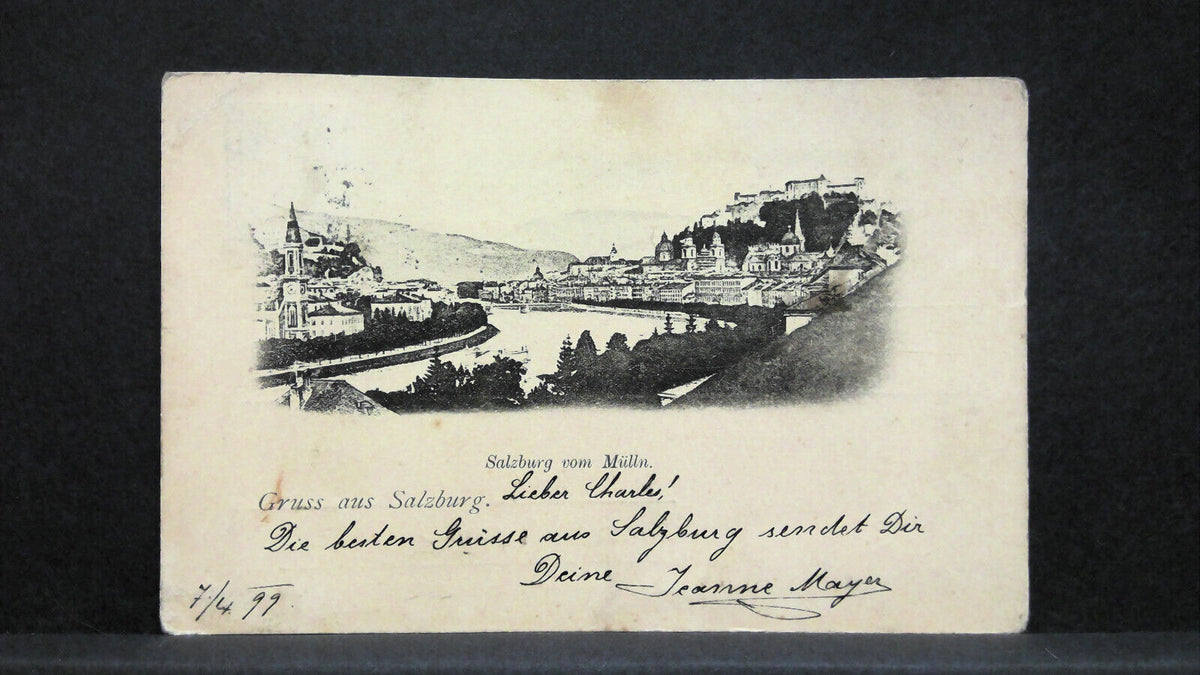 Salzburg vom Mülln.
Gruss aus Salzburg. Lieber Charles!
Die besten Grüsse aus Salzburg sendet Dir
Deine Jeanne Mayer
7/4 99.